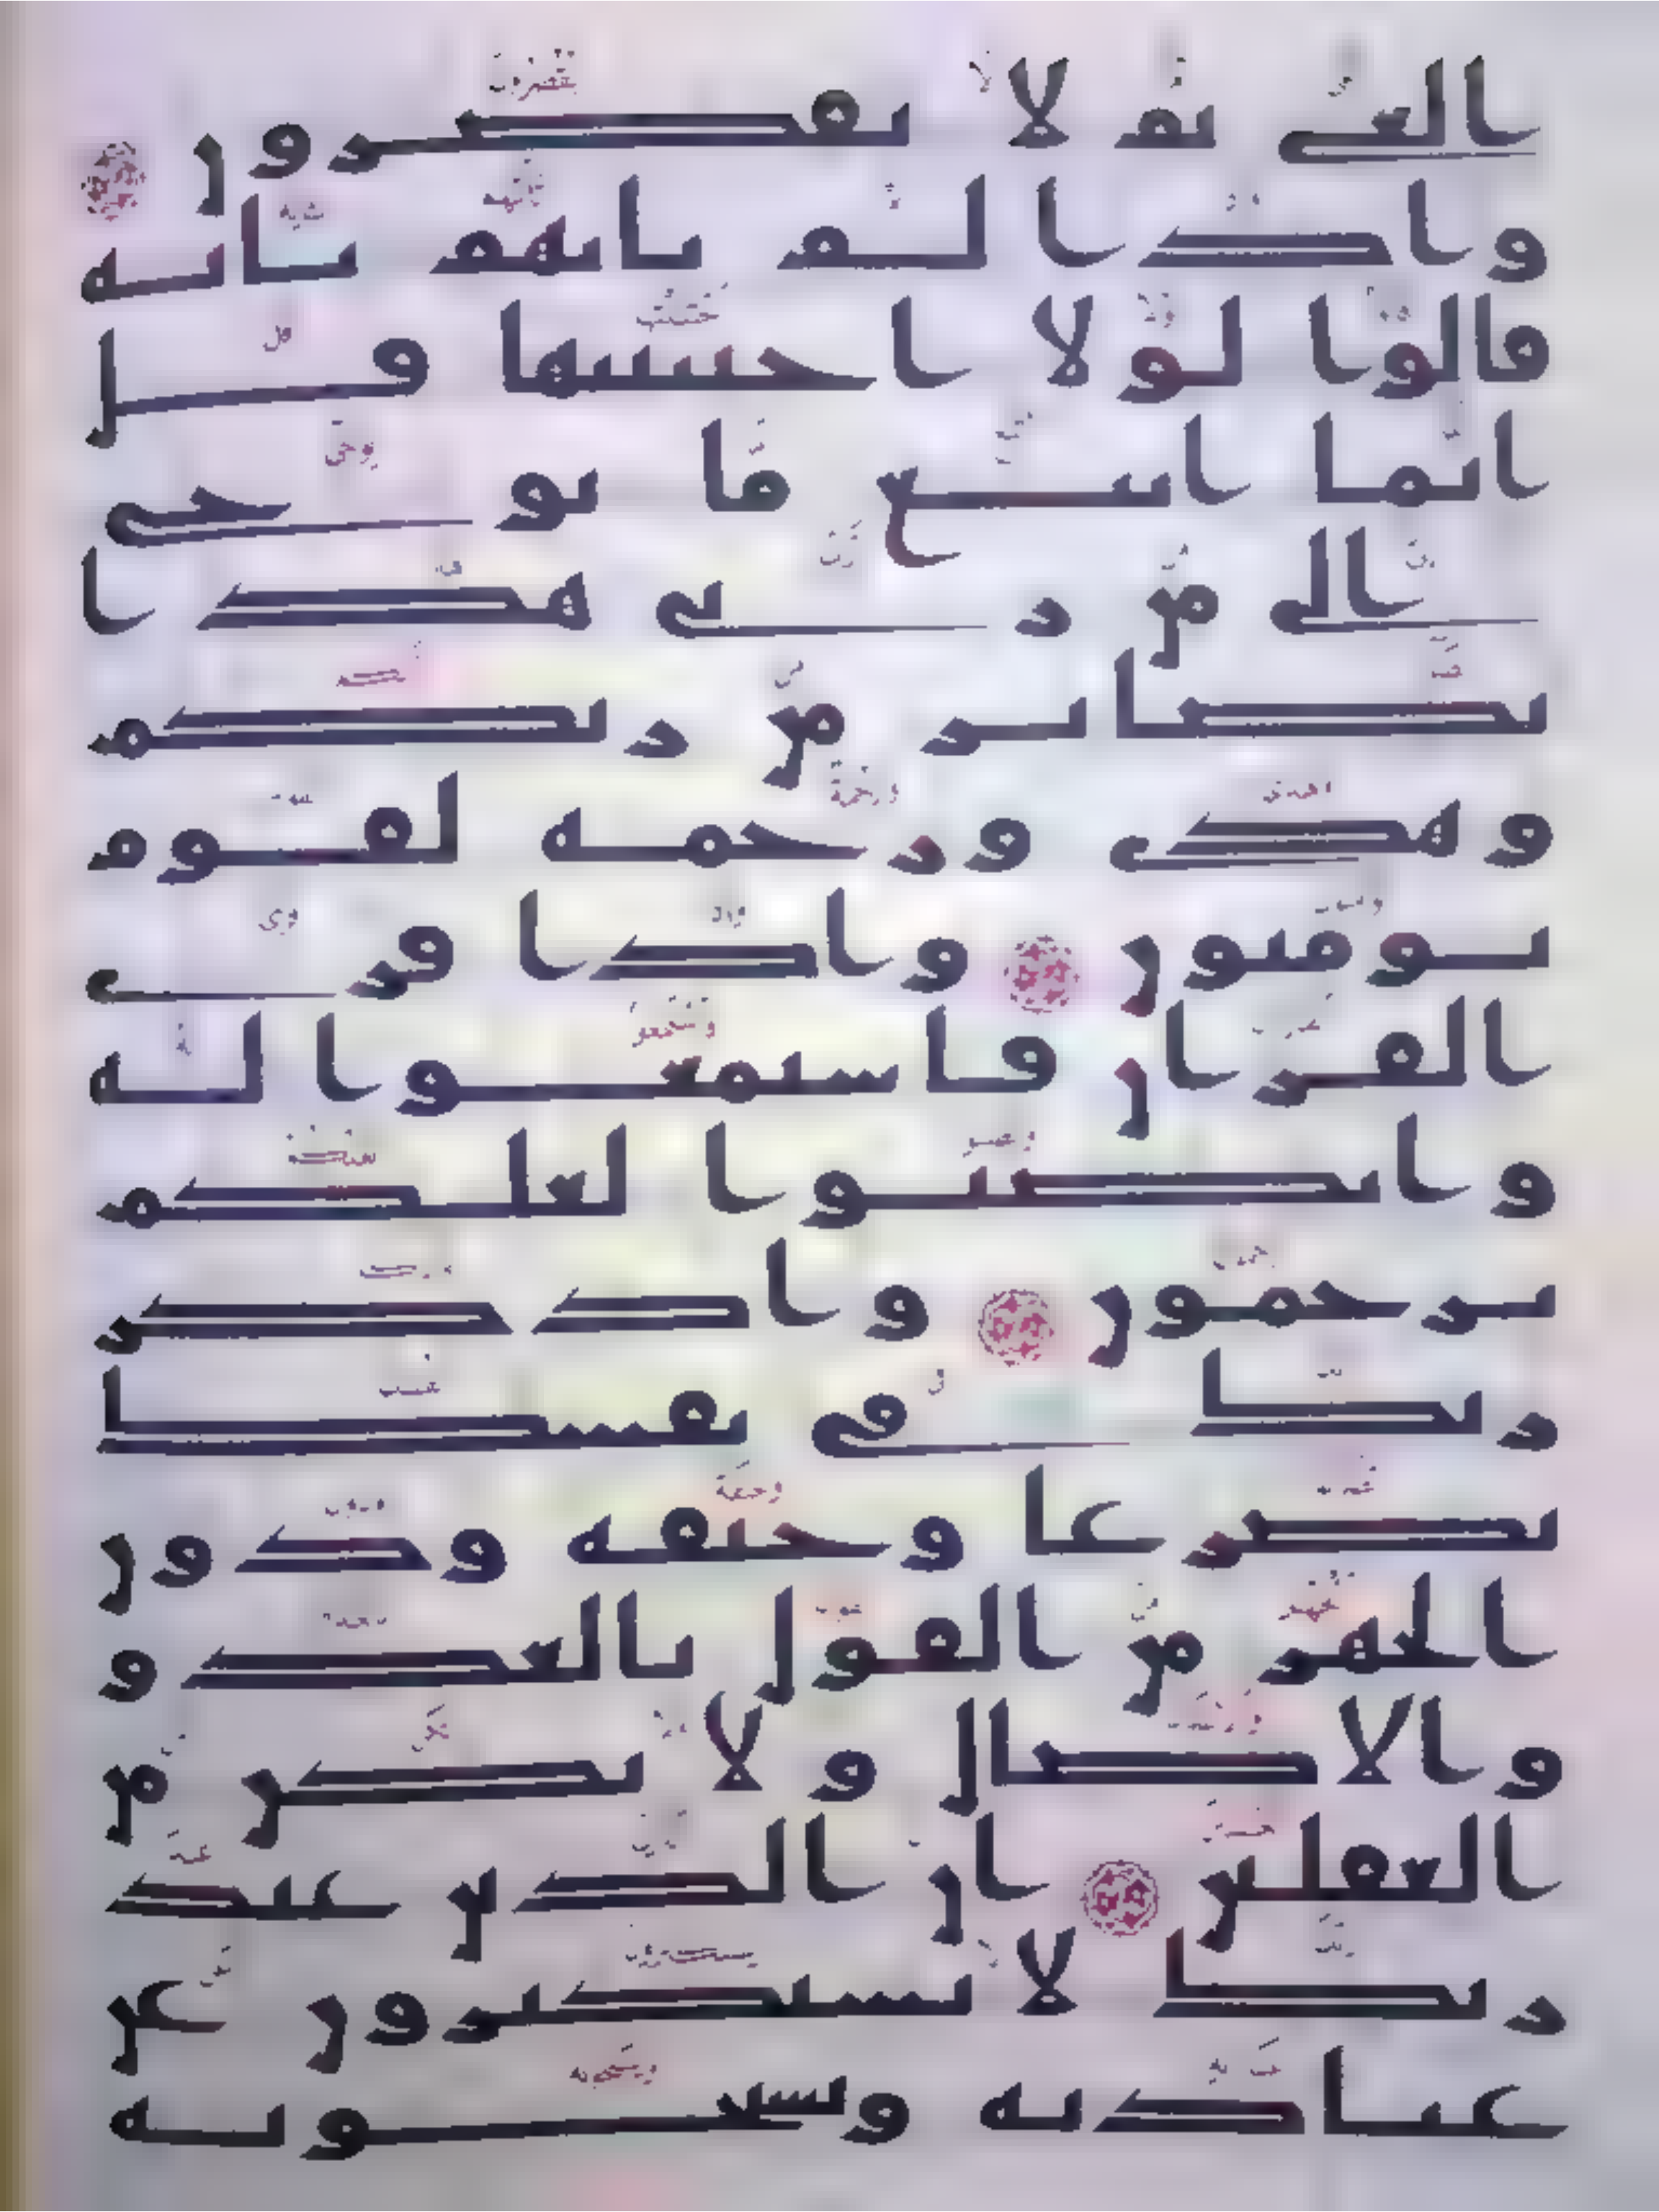 الغي ثم لا يقصرون
واذا لم تاتهم باية
قالوا لولا اجتبيتها قل
انما اتبع ما يوحى
الي من ربي هذا
بصاير من ربكم
وهدى ورحمة لقوم
يومنون واذا قرى
القران فاستمعوا له
وانصتوا لعلكم
ترحمون واذكر
ربك في نفسك
تضرعا وخيفة ودون
الجهر من القول بالغدو
والاصال ولا تكن من
الغفلين ان الذين عند
ربك لا يستكبرون عن
عبادته ويسبحونه